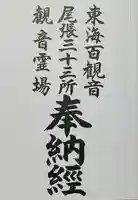 東海百觀音
尾張三十三所
觀音霊場
奉納經